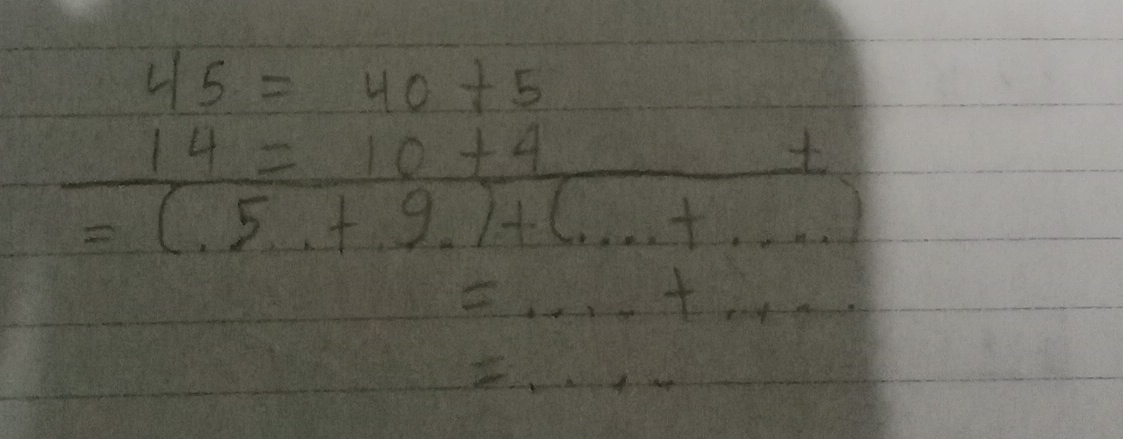 45 = 40 + 5
14 = 10 + 4 +
= (. 5 .. + . 9 . ) + ( .... + ..... )
= ..... + .....
= .....